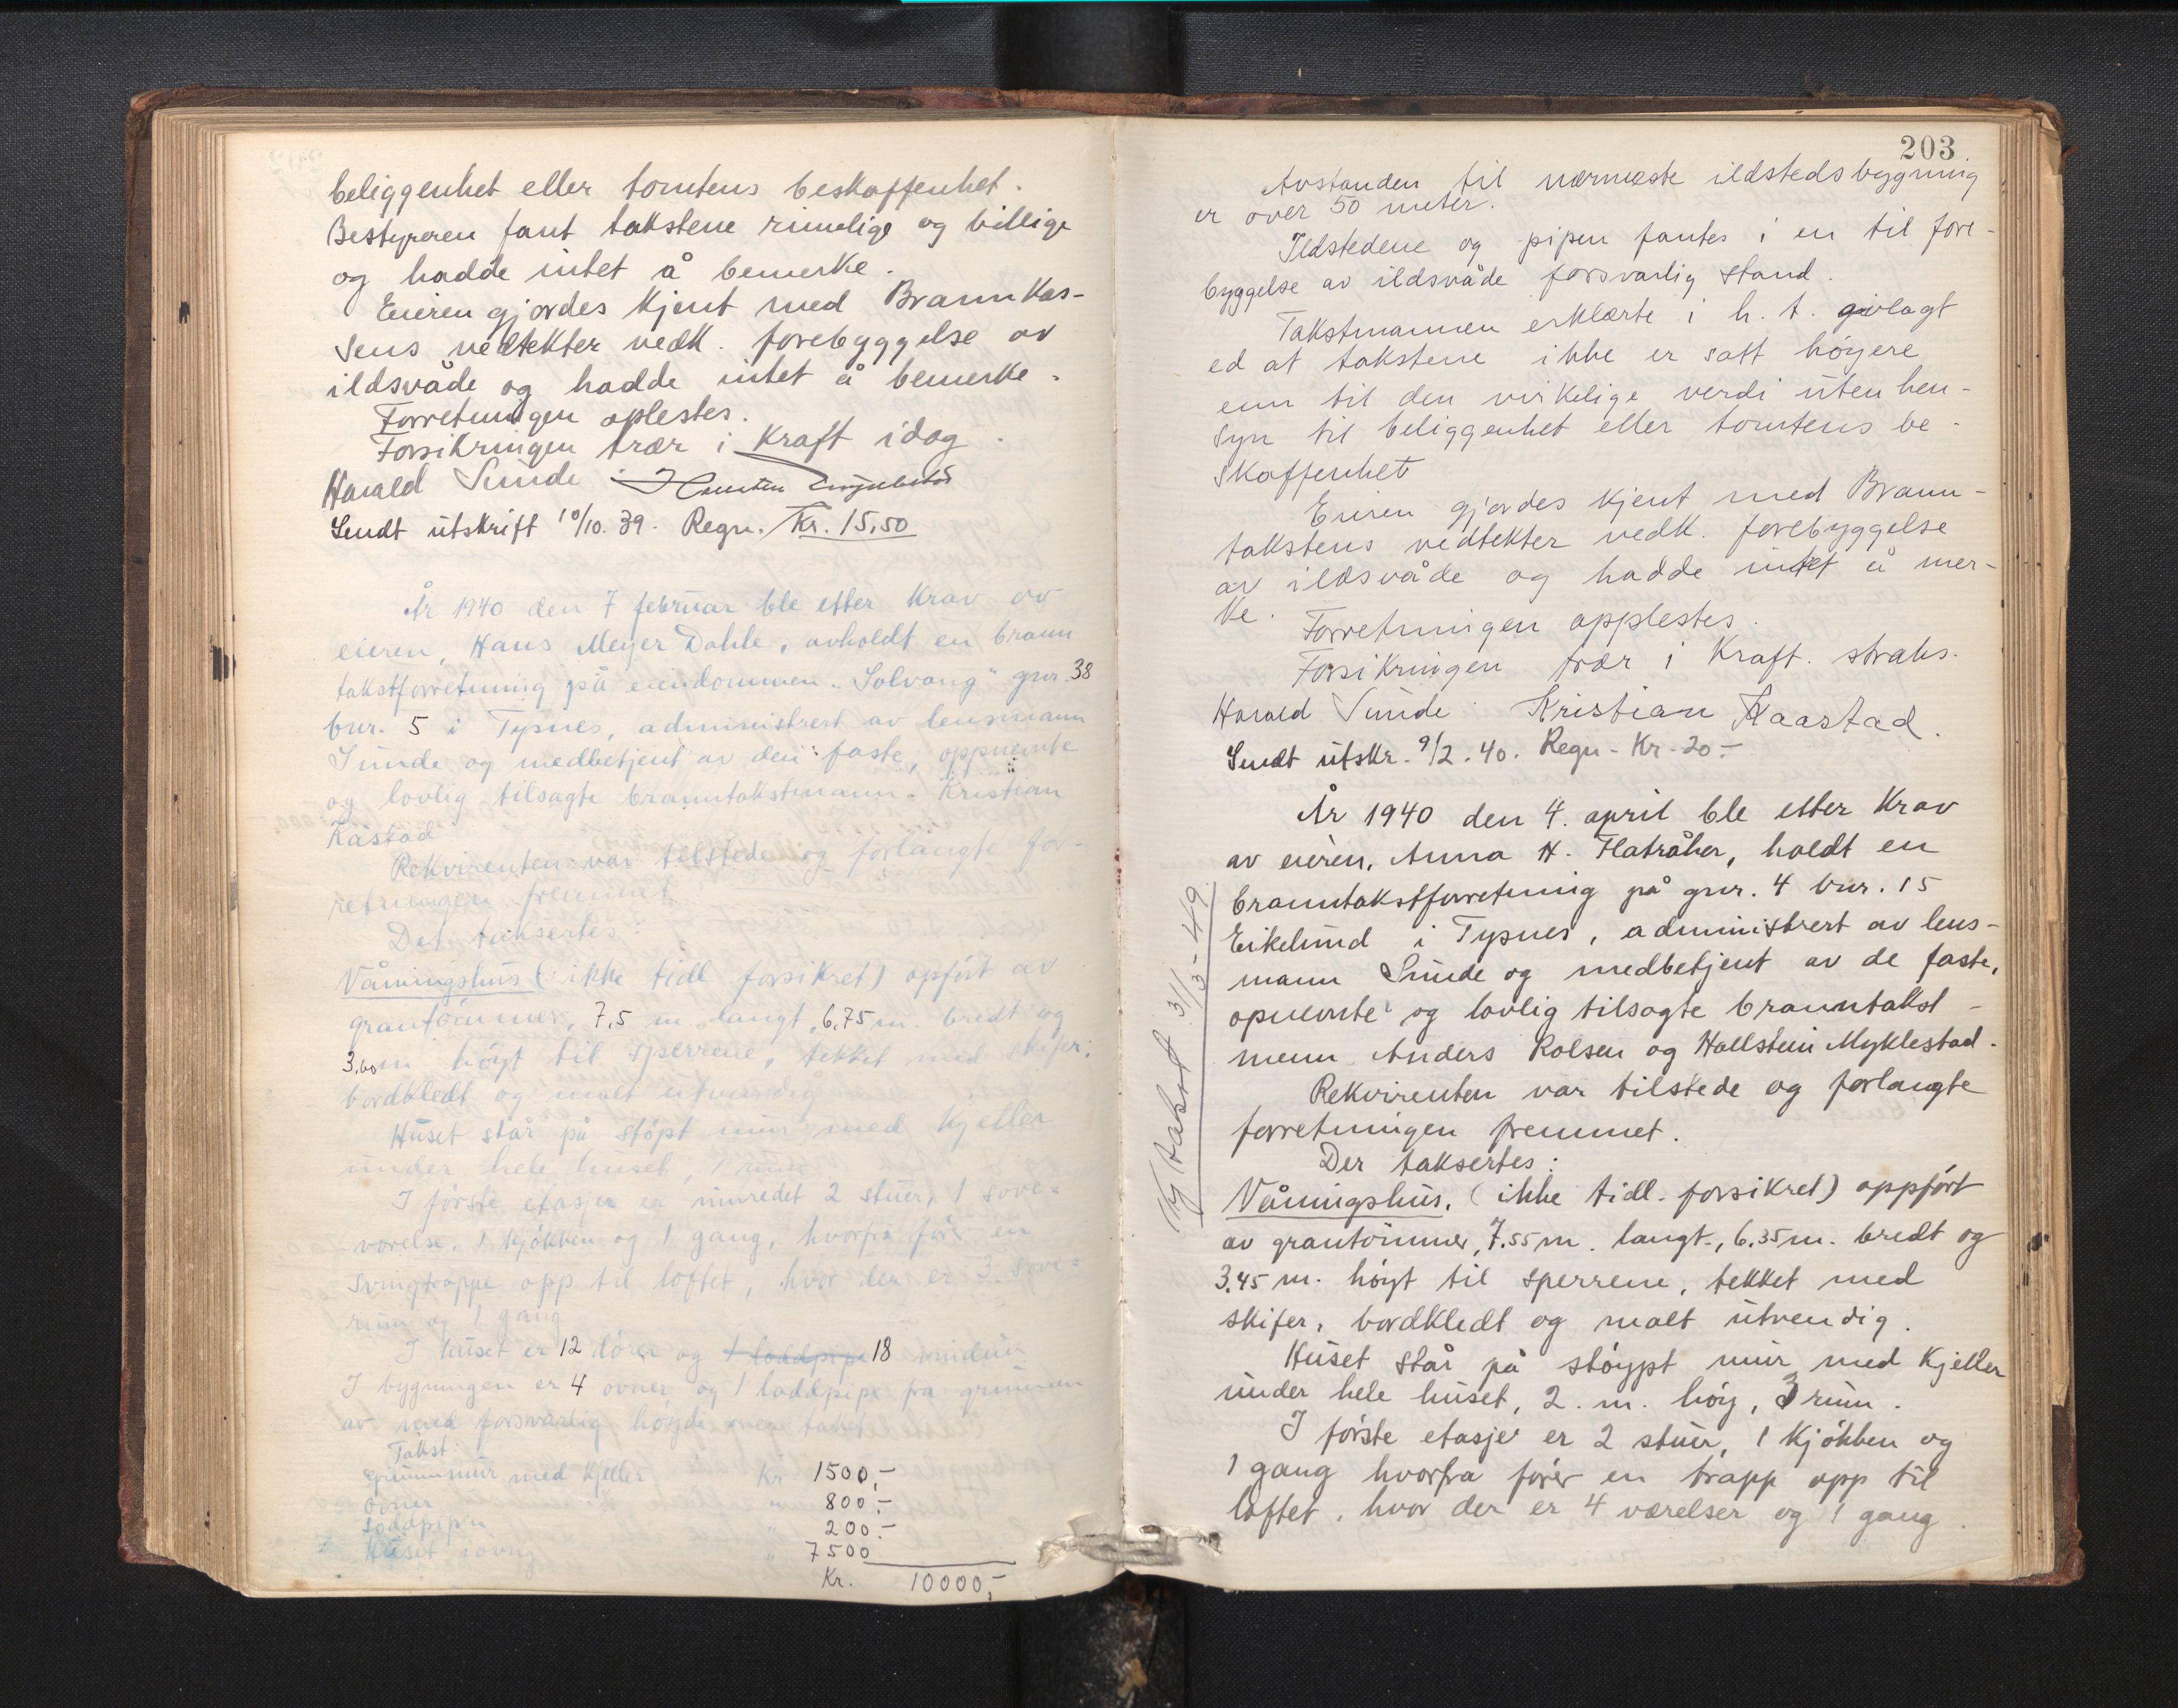 beliggenhet eller tomtens beskaffenhet.
Bestyreren fant takstene rimelige og billige
og hadde intet å bemerke.
Eieren gjordes kjent med Brannkas-
sens vedtekter vedk. forebyggelse av
ildsvåde og hadde intet å bemerke.
Forretningen oplestes.
Forsikringen trær i kraft idag.
Harald Sunde
Sendt utskrift 10/10. 39. Regn. Kr. 15,50
År 1940 den 7 februar ble etter krav av
eieren, Hans Meyer Dahle, avholdt en brann
takstforretning på eiendommen "Solvang" gnr. 38
bnr. 5 i Tysnes, administrert av lensmann
Sunde og medbetjent av den faste, oppnevnte
og lovlig tilsagte branntakstmann Kristian
Kåstad
Rekvirenten var tilstede og forlangte for-
retningen fremmet.
Det taksertes:
Våningshus (ikke tidl forsikret) opført av
grantømmer, 7,5 m langt, 6,75 m. bredt og
3,60 m høyt til sperrene, tekket med skifer,
bordkledt og malt utvendig
Huset står på støpt mur med kjeller
under hele huset, 1 rum
I første etasje er innredet 2 stuer, 1 sove-
værelse, 1 kjøkken og 1 gang, hvorfra fører en
svingtrappe opp til loftet, hvor der er 3 sove-
rum og 1 gang
I huset er 12 dører og 1 loddpipe 18 vinduer
I bygningen er 4 ovner og 1 loddpipe fra grunnen
av med forsvarlig høyde over taket
Takst:
Grunnmur med kjeller Kr. 1500,-
ovner " 800,-
Loddpipen " 200.-
Huset iøvrig " 7500
Kr. 10000,-
203
Avstanden til nærmeste ildstedsbygning
er over 50 meter.
Ildstedene og pipen fantes i en til fore-
byggelse av ildsvåde forsvarlig stand.
Takstmannen erklærte i h. t. avlagt
ed at takstene ikke er satt høyere
enn til den virkelige verdi uten hen-
syn til beliggenhet eller tomtens be-
skaffenhet
Eieren gjordes kjent med Brann-
takstens vedtekter vedk. forebyggelse
av ildsvåde og hadde intet å mer-
ke.
Forretningen opplestes.
Forsikringen trær i kraft straks.
Harald Sunde Kristian Kaastad.
Sendt utskr. 9/2. 40. Regn - Kr. 20.-
År 1940 den 4. april ble etter krav
av eieren, Anna H. Flatråker, holdt en
branntakstforretning på gnr. 4 bnr. 15
Eikelund i Tysnes, administrert av lens-
mann Sunde og medbetjent av de faste,
opnevnte og lovlig tilsagte branntakst-
menn Anders Rolsen og Hallstein Myklestad.
Rekvirenten var tilstede og forlangte
forretningen fremmet.
Der taksertes:
Våningshus, (ikke tidl. forsikret) oppført
av grantømmer, 7.55 m. langt, 6.35 m. bredt og
3.45 m. høyt til sperrene, tekket med
skifer, bordkledt og malt utvendig.
Huset står på støypt mur med kjeller
under hele huset, 2. m. høy, 3 rum.
I første etasje er 2 stuer, 1 kjøkken og
1 gang hvorfra fører en trapp opp til
loftet, hvor der er 4 værelser og 1 gang.
Ny takst 31/3-49